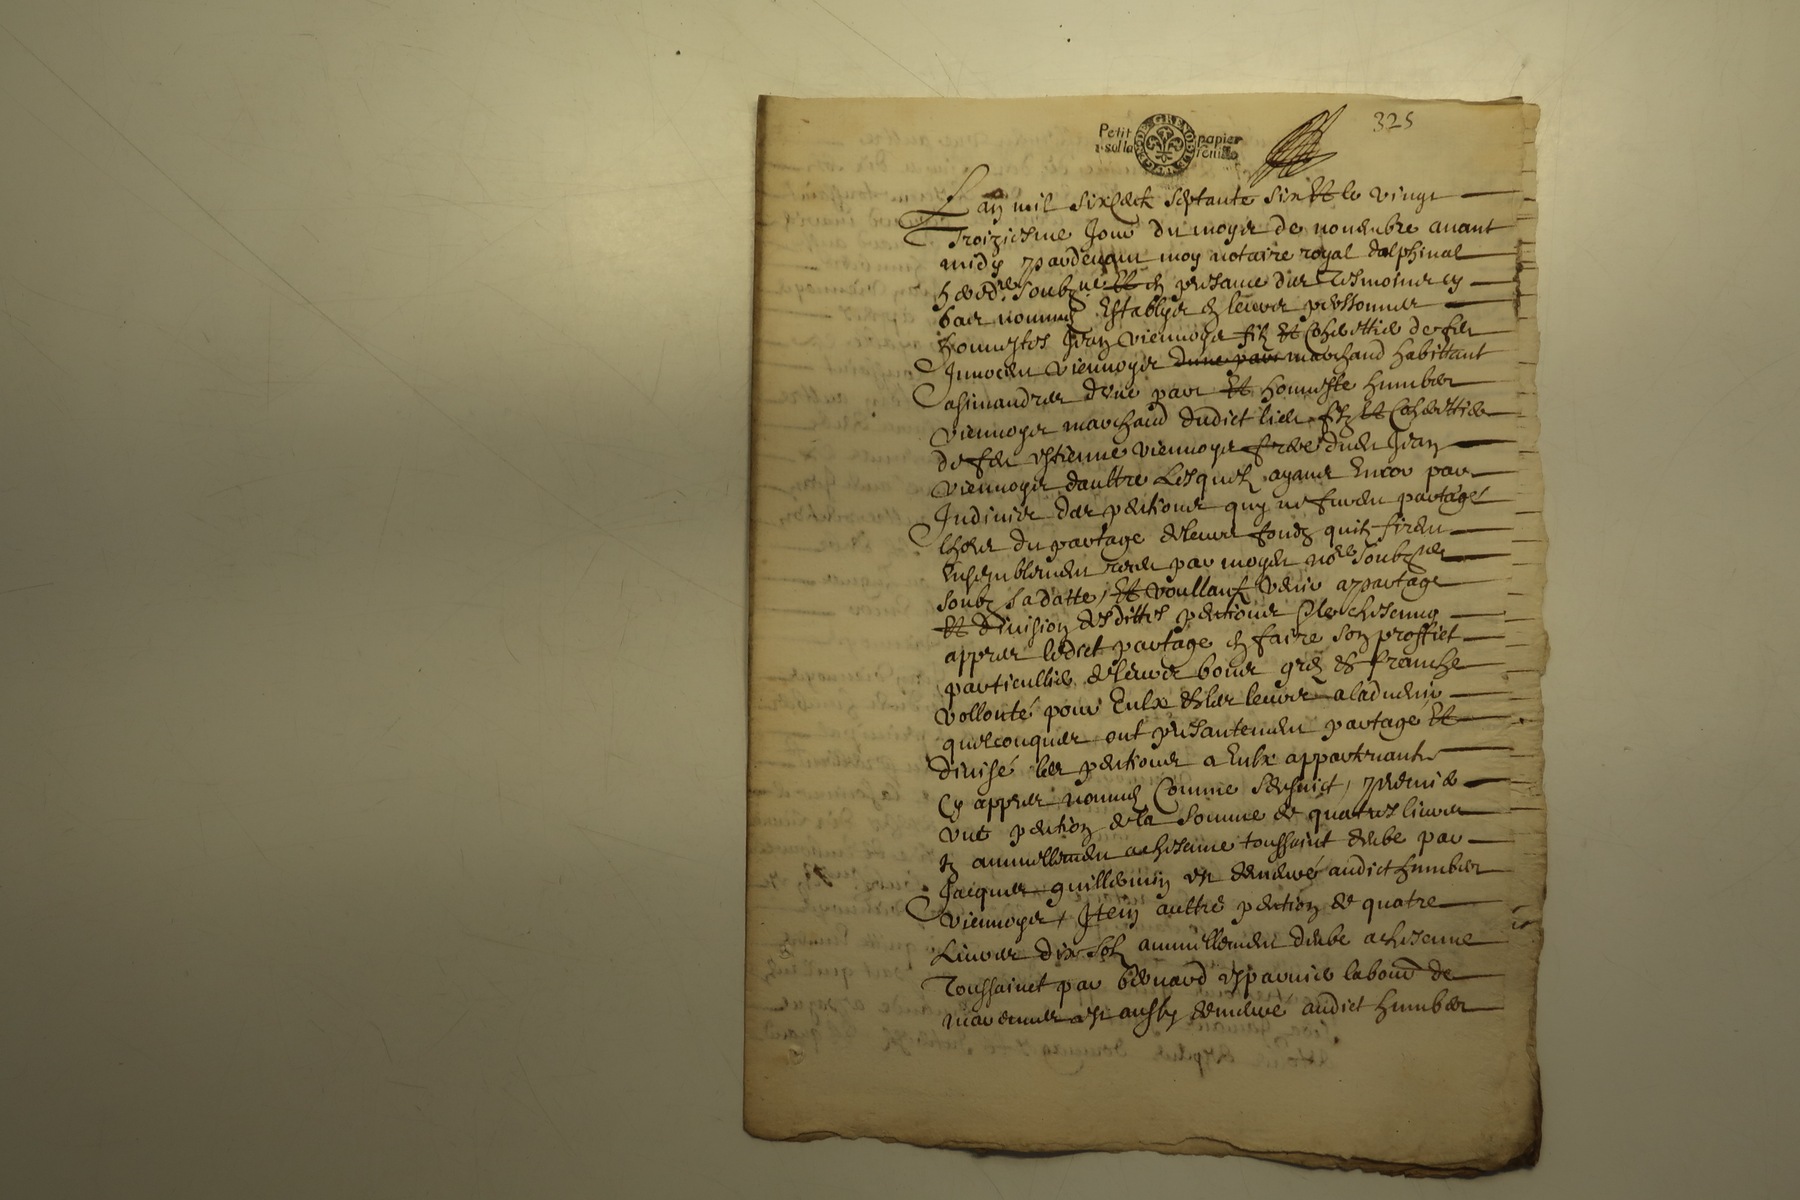 325
Petit papier
1 sol la feuille
GRENOBLE
L'an mil six cents septante six et le vingt
Troiziesme Jour du moys de novembre avant
midy pardevant moy notaire royal dalphinal
hered.re soubz.né et en presance des Tesmoins cy
bas nommés Establys en leurs perssonnes
honnestes Jean Viennoys filz et Coherittier de feu
Innocen Viennoys dune part marchand habittant
a Simandres dune part et honneste humbert
Viennoys marchand dudict lieu filz et Coherittier
de feu estienne Viennoys frere dudit Jean
Viennoys daultre Lesquels ayant Encor par
Indivis des pentions quy ne furent partagé
lhors du partage de leurs fondz quilz firent
Ensemblement receu par moydit no.re soubzné
soubz sa datte, et voullant venir a partage
et division desdittes pentions pour chescung
appres ledict partage en faire son proffict
particullier de leurs bons gré et franche
vollonté pour Eulx et les leurs a ladvenir
quelconques ont presantement partagé et
divisé les pentions a Eulx appartenants
Cy appres nommés Comme sensuict, premier
une pention de la somme de quatres livres
annuellement a chescune toussainct deube par
Jacques guillermin est demeuré audict humbert
Viennoys, Item aultre pention de quatre
Livres dix solz annuellement deube a chescune
Toussainct par bernard esparvier labour de
marennes est aussy demeuré audict humbert